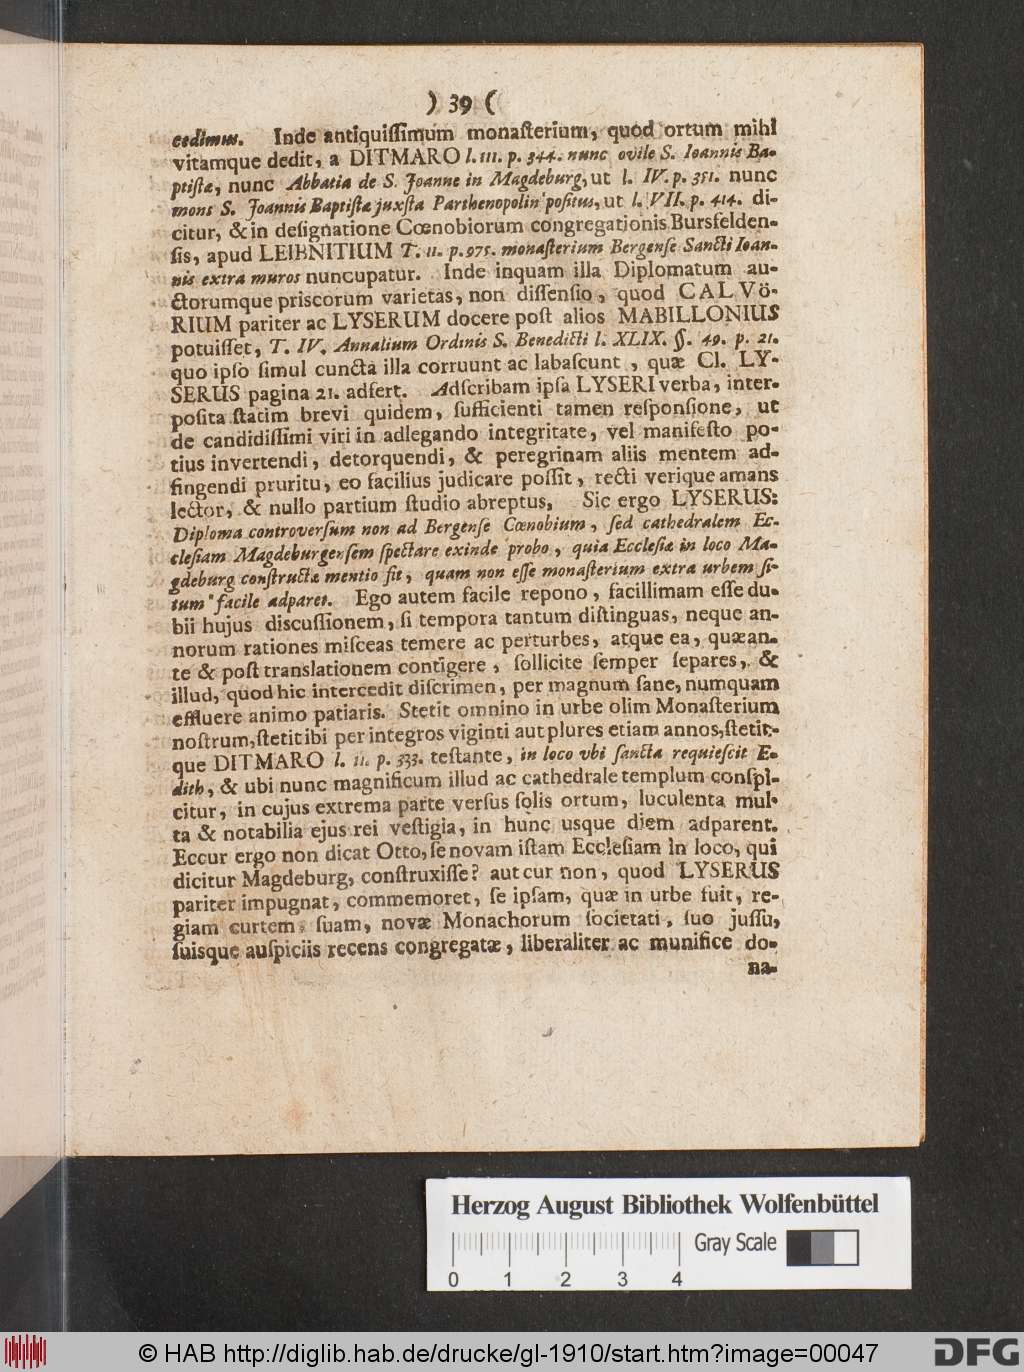 ) 39 (
cedimus. Inde antiquiſſimum monaſterium, quod ortum mihi
vitamque dedit, a DITMARO l. III. p. 344. nunc ovile S. Ioannis Ba-
ptiſtæ, nunc Abbatia de S. Joanne in Magdeburg, ut l. IV. p. 351. nunc
mons S. Joannis Baptiſtæ juxſta Parthenopolin poſitus, ut l. VII. p. 414. di-
citur, & in deſignatione Cœnobiorum congregationis Bursfelden-
ſis, apud LEIBNITIUM T. II. p. 975. monaſterium Bergenſe Sancti Ioan-
nis extra muros nuncupatur. Inde inquam illa Diplomatum au-
ctorumque priscorum varietas, non diſſenſio, quod CALVö-
RIUM pariter ac LYSERUM docere poſt alios MABILLONIUS
potuiſſet, T. IV. Annalium Ordinis S. Benedicti l. XLIX. §. 49. p. 21.
quo ipſo ſimul cuncta illa corruunt ac labaſcunt, quæ Cl. LY-
SERUS pagina 21. adfert. Adſcribam ipſa LYSERI verba, inter-
poſita ſtatim brevi quidem, ſufficienti tamen reſponſione, ut
de candidiſſimi viri in adlegando integritate, vel manifeſto po-
tius invertendi, detorquendi, & peregrinam aliis mentem ad-
fingendi pruritu, eo facilius judicare poſſit, recti verique amans
lector, & nullo partium ſtudio abreptus, Sic ergo LYSERUS:
Diploma controverſum non ad Bergenſe Cœnobium, ſed cathedralem Ec-
cleſiam Magdeburgenſem ſpectare exinde probo, quia Eccleſiæ in loco Ma-
gdeburg conſtructæ mentio fit, quam non eſſe monaſterium extra urbem ſi-
tum facile adparet. Ego autem facile repono, facillimam eſſe du-
bii hujus discuſſionem, ſi tempora tantum diſtinguas, neque an-
norum rationes miſceas temere ac perturbes, atque ea, quæ an-
te & poſt translationem contigere, ſollicite ſemper ſepares, &
illud, quod hic intercedit diſcrimen, per magnum ſane, numquam
effluere animo patiaris. Stetit omnino in urbe olim Monaſterium
noſtrum, ſtetit ibi per integros viginti aut plures etiam annos, ſtetit-
que DITMARO l. II. p. 333. teſtante, in loco vbi ſancta requieſcit E-
dith, & ubi nunc magnificum illud ac cathedrale templum conſpi-
citur, in cujus extrema parte verſus ſolis ortum, luculenta mul-
ta & notabilia ejus rei veſtigia, in hunc usque diem adparent.
Eccur ergo non dicat Otto, ſe novam iſtam Eccleſiam in loco, qui
dicitur Magdeburg, conſtruxiſſe? aut cur non, quod LYSERUS
pariter impugnat, commemoret, ſe ipſam, quæ in urbe fuit, re-
giam curtem ſuam, novæ Monachorum ſocietati, ſuo juſſu,
ſuisque auſpiciis recens congregatæ, liberaliter ac munifice do-
na-
Herzog August Bibliothek Wolfenbüttel
Gray Scale
0 1 2 3 4
© HAB http://diglib.hab.de/drucke/gl-1910/start.htm?image=00047
DFG